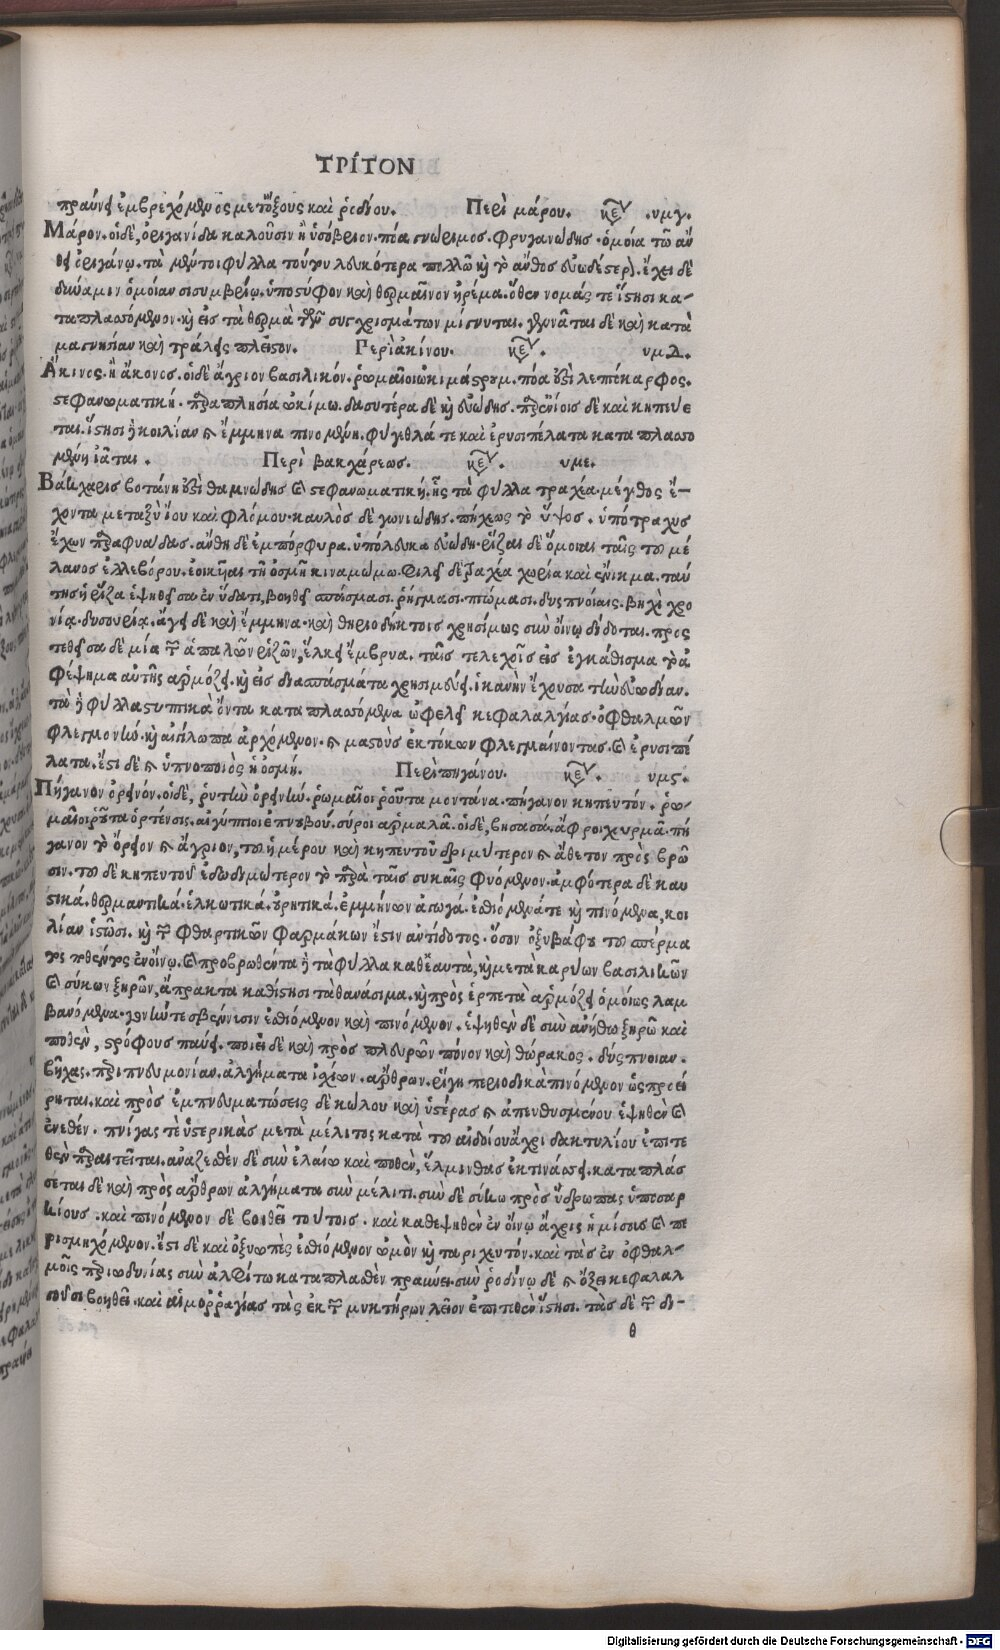 ΤΡΊΤΟΝ
πραΰνει ἐμβρεχόμενος μετ' ὄξους καὶ ῥοδίνου. Περὶ μάρου. κεφ. υμγ.
Μάρον. οἱ δὲ, ὀριγανίδα καλοῦσιν ἢ ὑσόβριον. πόα γνώριμος. φρυγανώδης. ὁμοία τῶ ἄν
θει ὀριγάνῳ. τὰ μέντοι φύλλα τούτου λευκότερα πολλῶ καὶ τὸ ἄνθος εὐωδέστερον. ἔχει δὲ
δύναμιν ὁμοίαν σισυμβρίῳ. ὑποστύφον καὶ θερμαῖνον ἠρέμα. ὅθεν νομάς τε ἵστησι κα-
ταπλασσόμενον. καὶ εἰς τὰ θερμὰ τῶν συγχρισμάτων μίγνυται. γεννᾶται δὲ καὶ κατὰ
μαγνησίαν καὶ τράλεις πλεῖστον. Περὶ ἀκίνου. κεφ. υμδ.
Ἄκινος. ἢ ἄκονος. οἱ δὲ ἄγριον βασιλικόν. ῥωμαῖοι ὠκιμάστρουμ. πόα ἐστὶ λεπτόκαρφος.
στεφανωματική. παραπλησία ὠκίμω. δασυτέρα δὲ καὶ εὐώδης. παρ' ἐνίοις δὲ καὶ κηπεύε
ται. ἵστησι δὲ κοιλίαν καὶ ἔμμηνα πινομένη. φύγεθλά τε καὶ ἐρυσιπέλατα καταπλασσο
μένη ἰᾶται. Περὶ βακχάρεως. κεφ. υμε.
Βάκχαρις βοτάνη ἐστὶ θαμνώδης καὶ στεφανωματική. ἧς τὰ φύλλα τραχέα. μέγεθος ἔ-
χοντα μεταξὺ ἴου καὶ φλόμου. καυλὸς δὲ γωνιώδης. πήχεως τὸ ὕψος. ὑπότραχυς
ἔχων παραφυάδας. ἄνθη δὲ ἐμπόρφυρα. ὑπόλευκα εὐώδη. ῥίζαι δὲ ὅμοιαι ταῖς τοῦ μέ
λανος ἐλλεβόρου. ἐοικῆαι τῆ ὀσμῆ κιναμώμω. φιλεῖ δὲ τραχέα χωρία καὶ ἔνικμα. ταύ
της ἡ ῥίζα ἑψηθεῖσα ἐν ὕδατι, βοηθεῖ σπάσμασι. ῥήγμασι. πτώμασι. δυσπνοίαις. βηχὶ χρο
νίᾳ. δυσουρίᾳ. ἄγει δὲ καὶ ἔμμηνα. καὶ θηριοδήκτοις χρησίμως σὺν οἴνῳ δίδοται. προσ
τεθεῖσα δὲ μία τῶν ἁπαλῶν ῥιζῶν, ἕλκει ἔμβρυα. ταῖς τε λεχοῖς εἰς ἐγκάθισμα τὸ ἀ
φέψημα αὐτῆς ἁρμόζει. καὶ εἰς διαπάσματα χρησιμεύει. ἱκανὴν ἔχουσα τὴν εὐωδίαν.
τὰ δὲ φύλλα στυπτικὰ ὄντα καταπλασσόμενα ὠφελεῖ κεφαλαλγίας. ὀφθαλμῶν
φλεγμονὴν. καὶ αἰγίλωπα ἀρχόμενον. καὶ μαστοὺς ἐκ τόκων φλεγμαίνοντας. καὶ ἐρυσιπέ
λατα. ἔστι δὲ καὶ ὑπνοποιὸς ἡ ὀσμή. Περὶ πηγάνου. κεφ. υμϛ.
Πήγανον ὀρεινόν. οἱ δὲ, ῥυτὴν ὀρεινήν. ῥωμαῖοι ῥοῦτα μοντάνα. πήγανον κηπευτόν. ῥω-
μαῖοι ῥοῦτα ὁρτένσις. αἰγύπτιοι ἐπνυβού. σύροι αρμαλᾶ. οἱ δὲ, βησασά. ἄφροι χυρμᾶ. πή
γανον τὸ ὄρειον καὶ ἄγριον, τοῦ ἡμέρου καὶ κηπευτοῦ δριμύτερον καὶ ἄθετον πρὸς βρῶ
σιν. τοῦ δὲ κηπευτοῦ ἐδωδιμώτερον τὸ παρὰ ταῖς συκαῖς φυόμενον. ἀμφότερα δὲ καυ
στικά. θερμαντικά. ἑλκωτικά. οὐρητικά. ἐμμήνων ἀγωγά. ἐσθιόμενά τε καὶ πινόμενα, κοι
λίαν ἱστῶσι. καὶ τῶν φθαρτικῶν φαρμάκων ἐστὶν ἀντίδοτος. ὅσον ὀξυβάφου τοῦ σπέρμα
τος ποθέντος ἐν οἴνῳ. καὶ προβρωθέντα δὲ τὰ φύλλα καθ' ἑαυτὰ, καὶ μετὰ καρύων βασιλικῶν
καὶ σύκων ξηρῶν, ἄπρακτα καθίστησι τὰ θανάσιμα. καὶ πρὸς ἑρπετὰ ἁρμόζει ὁμοίως λαμ
βανόμενα. γονήν τε σβέννυσιν ἐσθιόμενον καὶ πινόμενον. ἑψηθὲν δὲ σὺν ἀνήθω ξηρῶ καὶ
ποθὲν, στρόφους παύει. ποιεῖ δὲ καὶ πρὸς πλευρῶν πόνον καὶ θώρακος. δύσπνοιαν.
βῆχας. περιπνευμονίαν. ἀλγήματα ἰσχίων. ἄρθρων. ῥίγη περιοδικὰ πινόμενον ὡς προεί
ρηται. καὶ πρὸς ἐμπνευματώσεις δὲ κώλου καὶ ὑστέρας καὶ ἀπευθυσμένου ἑψηθὲν καὶ
ἐνεθέν. πνίγας τὲ ὑστερικὰς μετὰ μέλιτος κατὰ τοῦ αἰδοίου ἄχρι δακτυλίου ἐπιτε
θὲν παραιτεῖται. ἀναζεσθὲν δὲ σὺν ἐλαίω καὶ ποθὲν, ἕλμινθας ἐκτινάσσει. καταπλάσ
σεται δὲ καὶ πρὸς ἄρθρων ἀλγήματα σὺν μέλιτι. σὺν δὲ σύκω πρὸς ὕδρωπας ὑποσαρ
κίους. καὶ πινόμενον δὲ βοηθεῖ τούτοις. καὶ καθεψηθὲν ἐν οἴνῳ ἄχρις ἡμίσους καὶ πε
ρισμηχόμενον. ἔστι δὲ καὶ ὀξυωπὲς ἐσθιόμενον ὠμὸν καὶ ταριχευτόν. καὶ τὰς ἐν ὀφθαλ-
μοῖς περιωδυνίας σὺν ἀλφίτω καταπλασθὲν πραΰνει. σὺν ῥοδίνῳ δὲ καὶ ὄξει κεφαλαλ
γοῦσι βοηθεῖ. καὶ αἱμορραγίας τὰς ἐκ τῶν μυκτήρων λεῖον ἐπιτεθὲν ἵστησι. τὰς δὲ τῶν δι-
θ
Digitalisierung gefördert durch die Deutsche Forschungsgemeinschaft - DFG